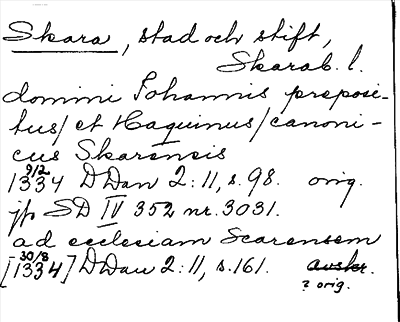 Skara, stad och stift,
Skarab. l.
domini Johannis preposi-
tus/ et Haquinus/canoni-
cus Skarensis
9/2
1334 DDan 2:11, s. 98. orig.
jfr SD IV 352 nr. 3031.
ad ecclesiam Scarensem
30/8
[1334] DDan 2:11, s. 161. avskr.
? orig.